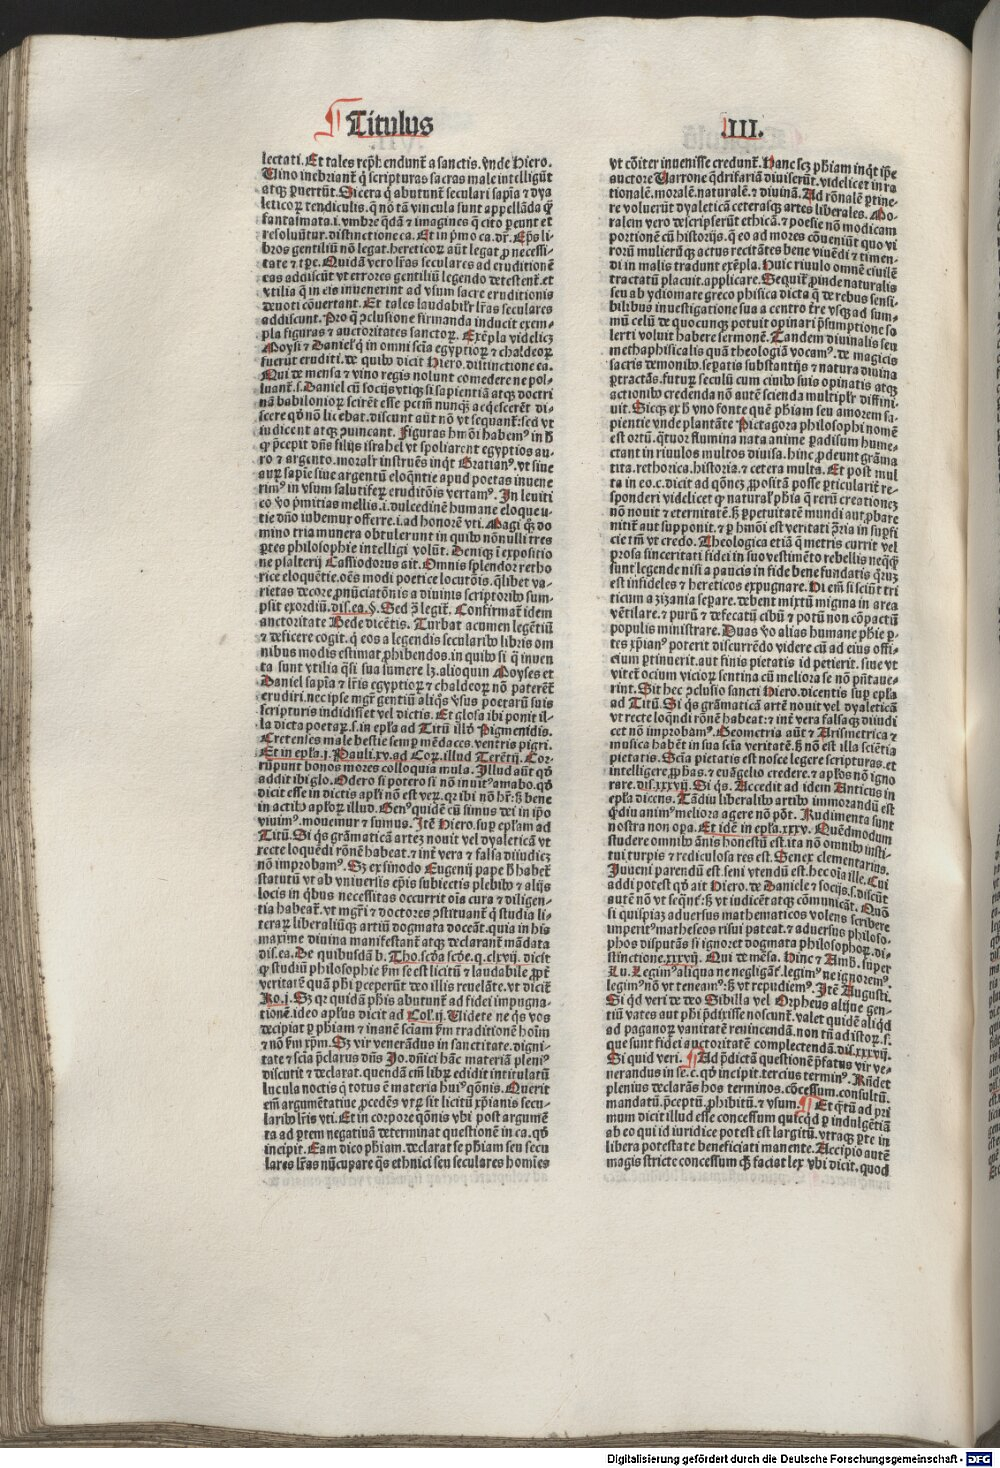 Titulus
.III.
lectati. Et tales rep̄hendunt̄ a sanctis. vnde Hiero.
Uino inebriant̄ q̄ scripturas sacras male intelligūt
atq; ꝑuertūt. Sicera q̄ abutunt̄ seculari sapīa ⁊ dya
leticoꝝ tendiculis. q̄ nō tā vincula sunt appellāda q̄
fantasmata .i. vmbre q̄dā ⁊ imagines q̄ cito ꝑeunt et
resoluūtur. distinctione ca. Et in pͥmo ca. dr̄. Ep̄s li-
bros gentiliū nō legat. hereticoꝝ aūt legat ꝓ necessi-
tate ⁊ tꝑe. Quidā vero lr̄as seculares ad eruditionē
eas addiscūt vt errores gentiliū legendo detestent̄. et
vtilia q̄ in eis inuenerint ad vsum sacre eruditionis
deuoti cōuertant. Et tales laudabilr̄ lr̄as seculares
addiscunt. Pro q̄ ꝯclusione firmanda inducit exem-
pla figuras ⁊ auctoritates sanctoꝝ. Exēpla videlicꝫ
Moysi ⁊ Daniel' q̄ in omni scīa egyptioꝝ ⁊ chaldeoꝝ
fuerūt eruditi. de quibꝰ dicit Hiero. distinctione ea.
Qui de mensa ⁊ vino regis nolunt comedere ne pol-
luant̄ .s. Daniel cū socijs vtiq; si sapientiā atq; doctri
nā babilonioꝝ scirēt esse pctm̄ nunq̄ acq̄escerēt di-
scere qd̓ nō licebat. discunt aūt nō vt sequant̄: sed vt
iudicent atq; ꝯuincant. Figuras hm̄ōi habemꝰ in h̄
ꝙ p̄cepit dn̄s filijs israhel vt spoliarent egyptios au-
ro ⁊ argento. moralr̄ instruēs inq̄t Gratianꝰ. vt siue
auꝝ sapīe siue argentū eloq̄ntie apud poetas inuene
rimꝰ in vsum salutifeꝝ eruditōnis vertamꝰ. In leuiti
co v̓o pͥmitias mellis .i. dulcedinē humane eloque n-
tie dn̄o iubemur offerre .i. ad honorē vti. Magi q̄ꝫ do
mino tria munera obtulerunt in quibꝰ nōnulli tres
ꝑtes philosophie intelligi volūt. Deniq; ī expositio
ne psalterij Cassiodorus ait. Omnis splendor retho
rice eloquētie. oēs modi poetice locutōis. q̄libet va-
rietas decore ꝓnūciatōnis a diuinis scriptoribꝰ sum-
psit exordiū. dis. ea. §. Sed ꝯ̄ legit̄. Confirmat̄ idem
auctoritate Bede dicētis. Turbat acumen legētiū
⁊ deficere cogit. q̄ eos a legendis secularibꝰ libris om
nibus modis estimat ꝓhibendos. in quibꝰ si q̄ inuen
ta sunt vtilia q̄si sua sumere lꝫ. alioquin Moyses et
Daniel sapīa ⁊ lr̄is egyptioꝝ ⁊ chaldeoꝝ nō paterēt̄
erudiri. nec ipse mgr̄ gentiū aliq̄s v̓sus poetarū suis
scripturis indidisset vel dictis. Et glosa ibi ponit il-
la dicta poetaꝝ .s. in epl̄a ad Titū illd̓ Pigmenidis.
Cretenses male bestie semꝑ mēdaces. ventris pigri.
Et in epl̄a .j. Pauli .xv. ad Coꝝ. illud Terētij. Cor-
rūpunt bonos mores colloquia mala. Illud aūt qd̓
addit ibi glo. Odero si potero si nō inuitꝰ amabo. qd̓
dicit esse in dictis apl̓i nō est veꝝ. qꝛ ibi nō hr̄: sꝫ bene
in actibꝰ apl̓oꝝ illud. Genꝰ quidē cū simus dei in ip̄o
viuimꝰ. mouemur ⁊ sumus. Itē Hiero. suꝑ epl̄am ad
Titū. Si q̄s grāmaticā artez nouit vel dyaleticā vt
recte loquēdi rōnē habeat. ⁊ int̄ vera ⁊ falsa diiudicꝫ
nō improbamꝰ. Sꝫ ex sinodo Eugenij pape h̄ habet̄
statutū vt ab vniuersis ep̄is subiectis plebibꝰ ⁊ alijs
locis in q̄bus necessitas occurrit oīa cura ⁊ diligen-
tia habeat̄. vt mgr̄i ⁊ doctores ꝯstituant̄ q̄ studia li-
teraꝝ liberaliūq; artiū dogmata doceāt. quia in his
maxime diuina manifestant̄ atq; declarant̄ mādata
dis. ea. De quibusdā b. Tho. scd̓a scd̓e. q. clxvij. dicit
ꝙ studiū philosophie s̄m se est licitū ⁊ laudabile ꝓpt̄
veritatē quā ph̓i ꝑceperūt deo illis reuelāte. vt dicit̄
Ro. j. Sꝫ qꝛ quidā ph̓is abutunt̄ ad fidei impugna-
tionē. ideo apl̓us dicit ad Col. ij. Videte ne q̄s vos
decipiat ꝑ ph̓iam ⁊ inanē sciam s̄m traditionē hoīm
⁊ nō s̄m xp̄m. Sꝫ vir venerādus in sanctitate. digni-
tate ⁊ scīa p̄clarus dn̄s Jo. dn̄ici hāc materiā pleniꝰ
discutit ⁊ declarat. quendā em̄ libꝝ edidit intitulatū
lucula noctis q̄ totus ē materia huiꝰ q̄ōnis. Querit
em̄ argumētatiue ꝓcedēs vtꝝ sit licitū xp̄ianis secu-
laribꝰ lr̄is vti. Et in corpore q̄ōnis vbi post argumē
ta ad ꝑtem negatiuā determinat questionē in ca. qd̓
incipit. Eam dico ph̓iam. declarat se ph̓iam seu secu
lares lr̄as nūcupare q̄s ethnici seu seculares homīes
vt cōiter inuenisse credunt̄. Hanc scꝫ ph̓iam inq̄t ip̄e
auctore Varrone q̄drifariā diuiserūt. videlicet in ra
tionalē. moralē. naturalē. ⁊ diuinā. Ad rōnalē ꝑtine-
re voluerūt dyaleticā ceterasq; artes liberales. Mo-
ralem vero descripserūt ethicā. ⁊ poesie nō modicam
portionē cū historijs. q̄ eo ad mores cōueniūt quo vi
rorū mulierūq; actus recitātes bene viuēdi ⁊ timen-
di in malis tradunt exēpla. Huic riuulo omnē ciuilē
tractatū placuit. applicare. Sequit̄ ꝓinde naturalis
seu ab ydiomate greco phisica dicta q̄ de rebus sensi-
bilibus inuestigatione sua a centro tr̄e vsq; ad sum-
mū celū de quocunq; potuit opinari p̄sumptione so
lerti voluit habere sermonē. Tandem diuinalis seu
methaphisicalis quā theologiā vocamꝰ. de magicis
sacris demonibꝰ. seꝑatis substantijs ⁊ natura diuina
ꝑtractās. futuꝝ seculū cum ciuibꝰ suis opinatis atq;
actionibꝰ credenda nō autē scienda multiplr̄ diffini-
uit. Sicq; ex h̄ vno fonte quē ph̓iam seu amorem sa-
pientie vnde plantāte Pictagora philosophi nomē
est ortū. q̄tuor flumina nata anime ꝑadisum hume-
ctant in riuulos multos diuisa. hinc ꝓdeunt grāma
tica. rethorica. historia. ⁊ cetera multa. Et post mul
ta in eo. c. dicit ad q̄ōnez ꝓpositā posse ꝑticularit̄ re-
sponderi videlicet ꝙ naturalꝰ ph̓ia q̄ rerū creationez
nō nouit ⁊ eternitatē. sꝫ ꝑpetuitatē mundi aut ꝓbare
nitit̄ aut supponit. ⁊ ꝑ hm̄ōi est veritati ꝯ̄ria in suꝑfi
cie tm̄ vt credo. Theologica etiā q̄ metris currit vel
prosa sinceritati fidei in suo vestimēto rebellis neq̄q̄
sunt legende nisi a paucis in fide bene fundatis q̄ruꝫ
est infideles ⁊ hereticos expugnare. Hi em̄ si sciūt tri
ticum a zizania seꝑare. debent mixtū migna in area
vētilare. ⁊ purū ⁊ defecatū cibū ⁊ potū non cōpactū
populis ministrare. Duas v̓o alias humane ph̓ie ꝑ-
tes xp̄ianꝰ poterit discurrēdo videre cū ad eius offi-
cium ꝑtinuerit. aut finis pietatis id petierit. siue vt
vitet̄ ocium vicioꝝ sentina cū meliora se nō pn̄taue-
rint. Sit hec ꝯclusio sancti Hiero. dicentis suꝑ epl̄a
ad Titū. Si q̄s grāmaticā artē nouit vel dyaleticā
vt recte loq̄ndi rōnē habeat: ⁊ int̄ vera falsaq; diiudi
cet nō improbamꝰ. Geometria aūt ⁊ Arismetrica ⁊
musica habēt in sua scīa veritatē. sꝫ nō est illa sciētia
pietatis. Scīa pietatis est nosce legere scripturas. et
intelligere ꝓphas. ⁊ euāgelio credere. ⁊ apl̓os nō igno
rare. dis. xxxvij. Si q̄s. Accedit ad idem Anticus in
epl̄a dicens. Tādiu liberalibꝰ artibꝰ immorandū est
q̄diu animꝰ meliora agere nō pōt. Rudimenta sunt
nostra non opa. Et idē in epl̄a .xxxv. Quēdmodum
studere omnibꝰ ānis honestū est. ita nō omnibꝰ insti-
tui turpis ⁊ rediculosa res est. Senex elementarius.
Juueni parendū est. seni vtendū est. hec oīa ille. Cui
addi potest qd̓ ait Hiero. de Daniele ⁊ socijs .s. discūt
autē nō vt seq̄nt̄: sꝫ vt iudicēt atq; cōmunicāt. Quō
si quispiaz aduersus mathematicos volens scribere
imperitꝰ matheseos risui pateat. ⁊ aduersus philoso-
phos disputās si ignoret dogmata philosophoꝝ. di-
stinctione. xxxvij. Qui de mēsa. Hinc ⁊ Amb. super
Lu. Legimꝰ aliqua ne negligāt̄. legimꝰ ne ignoremꝰ.
legimꝰ nō vt teneamꝰ: sꝫ vt repudiemꝰ. Itē Augusti.
Si q̄d veri de deo Sibilla vel Orpheus alijue gen-
tiū vates aut ph̓i p̄dixisse noscunt̄. valet quidē aliq̄d
ad paganoꝝ vanitatē reuincendā. non tn̄ ad istoꝝ .s.
que sunt fidei auctoritatē complectendā. dis. xxxvij.
Si quid veri. ¶ Ad p̄dictā questionē p̄fatus vir ve-
nerandus in se. c. qd̓ incipit. tercius terminꝰ. Rn̄det
plenius declarās hos terminos. cōcessum. consultū.
mandatū. p̄ceptū. ꝓhibitū. ⁊ vsum. ¶ Et q̄tū ad pri
mum dicit illud esse concessum quicq̄d ꝑ indulgētiā
ab eo qui id iuridice potest est largitū. vtraq; ꝑte in
libera potestate beneficiati manente. Accipio autē
magis stricte concessum q̄ꝫ faciat lex vbi dicit. quod
Digitalisierung gefördert durch die Deutsche Forschungsgemeinschaft - DFG